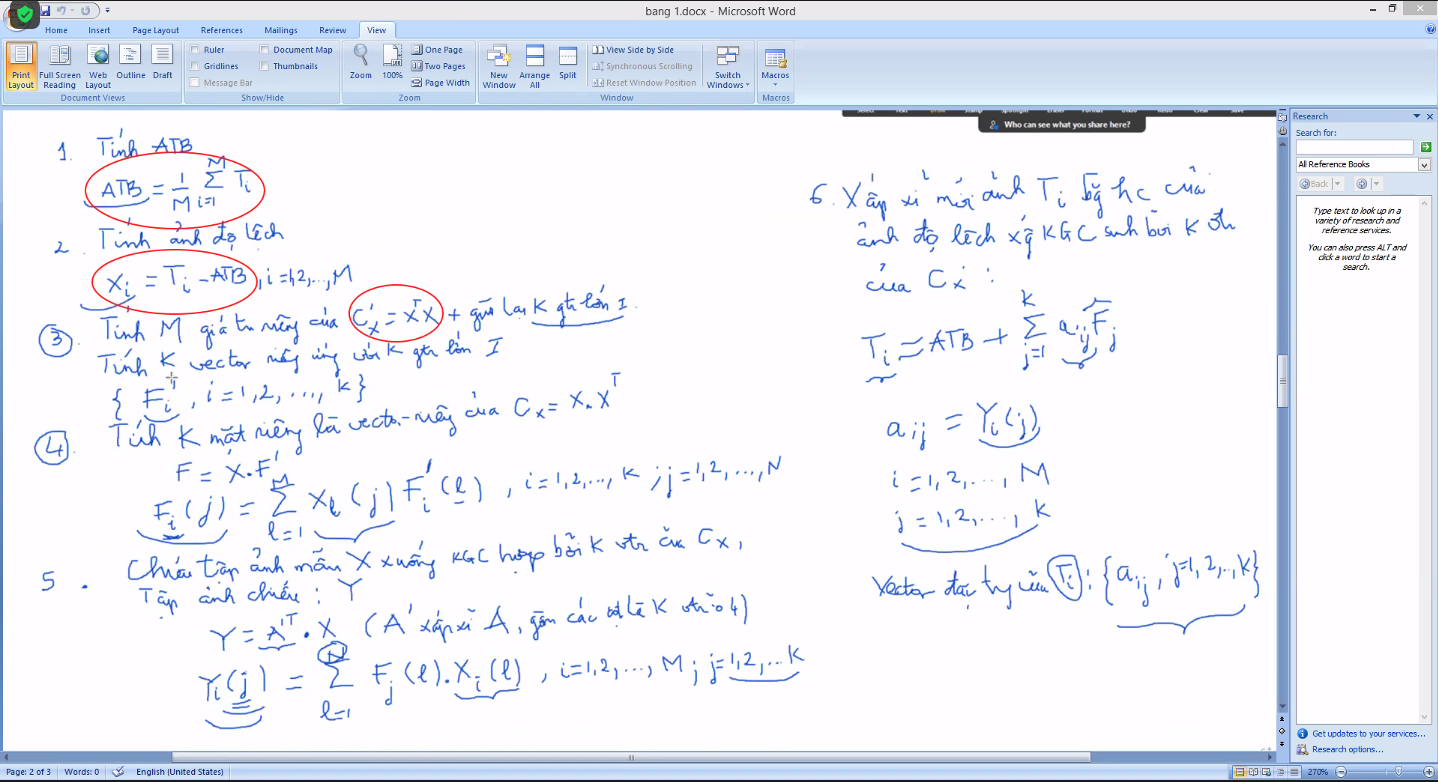 bang 1.docx - Microsoft Word
Home Insert Page Layout References Mailings Review View
Print Layout
Full Screen Reading
Web Layout
Outline
Draft
Document Views
Ruler
Gridlines
Message Bar
Document Map
Thumbnails
Show/Hide
Zoom
100%
One Page
Two Pages
Page Width
Zoom
New Window
Arrange All
Split
View Side by Side
Synchronous Scrolling
Reset Window Position
Switch Windows
Window
Macros
Macros
Who can see what you share here?
1. Tính ATB
ATB = 1/M Σ_{i=1}^{M} T_i
2. Tính ảnh độ lệch
X_i = T_i - ATB, i=1,2,...,M
3 Tính M giá trị riêng của C'_X = X^T X + giữ lại K gtr lớn I
Tính K vector riêng ứng với K gtr lớn I
{ F'_i, i=1,2,...,K }
4 Tính K mặt riêng là vector riêng của C_X = X.X^T
F = X.F'
F_i(j) = Σ_{l=1}^{M} X_l(j) F'_i(l), i=1,2,...,K; j=1,2,...,N
5. Chiếu tập ảnh mẫu X xuống KGC hợp bởi K vtr của C_X,
Tập ảnh chiếu: Y
Y = A'^T . X (A' xấp xỉ A, gồm các K vtr ở 4)
Y_i(j) = Σ_{l=1}^{N} F_j(l).X_i(l), i=1,2,...,M; j=1,2,...K
6. Xấp xỉ mỗi ảnh T_i bg hc của
ảnh độ lệch xg KGC sinh bởi K vtr
của C_X:
T_i ≈ ATB + Σ_{j=1}^{K} a_ij F_j
a_ij = Y_i(j)
i = 1,2,...,M
j = 1,2,...,K
Vector đặc trg của T_i: { a_ij, j=1,2,...,K }
Research
Search for:
All Reference Books
Back
Type text to look up in a variety of research and reference services.
You can also press ALT and click a word to start a search.
Get updates to your services...
Research options...
Page: 2 of 3 Words: 0 English (United States) 270%